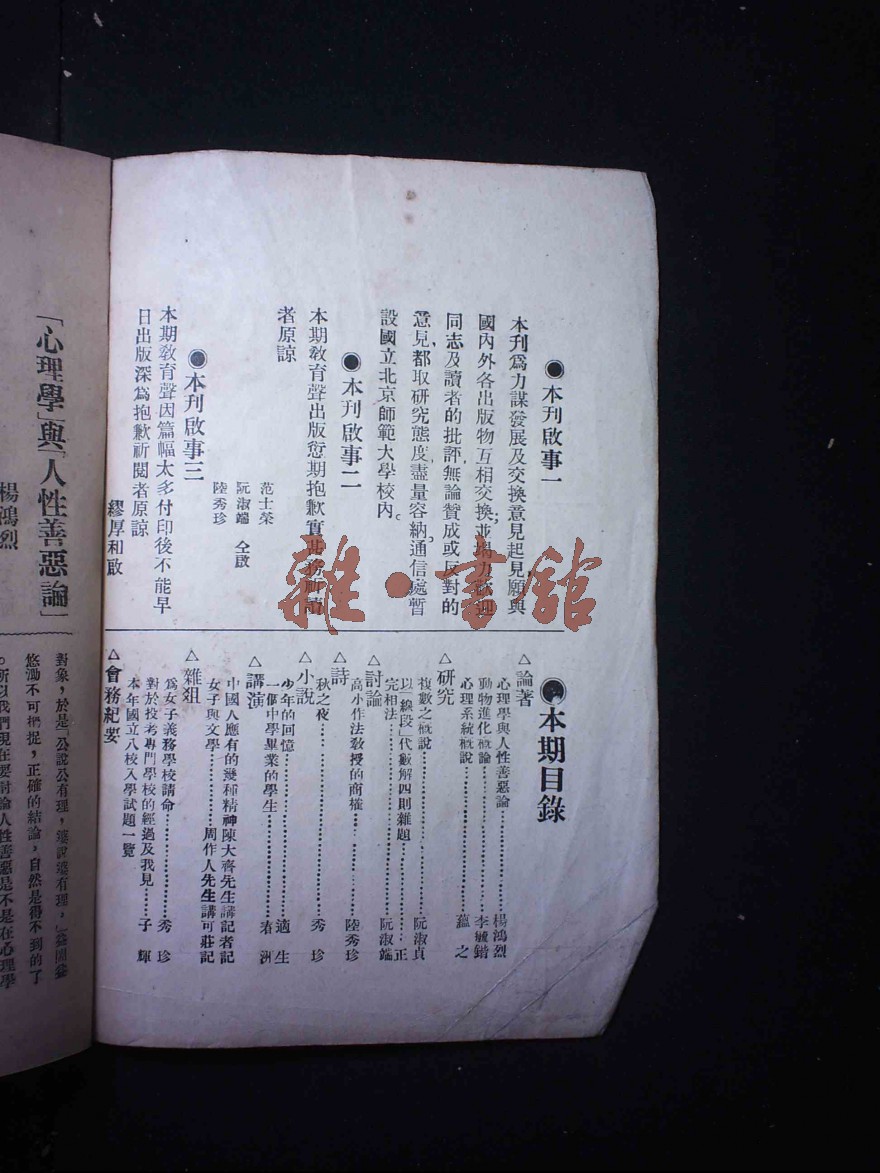 ●本刊啟事一
本刊為力謀發展及交換意見起見願與
國內外各出版物互相交換;並竭力歡迎
同志及讀者的批評,無論贊成或反對的
意見,都取研究態度,盡量容納,通信處暫
設國立北京師範大學校內。
●本刊啟事二
本期教育聲出版愆期抱歉實甚務祈讀
者原諒
范士榮
阮淑端 仝啟
陸秀珍
●本刊啟事三
本期教育聲因篇幅太多付印後不能早
日出版深為抱歉祈閱者原諒
繆厚和啟
●本期目錄
△論著
心理學與人性善惡論……楊鴻烈
動物進化概論……李毓鍇
心理系統概說……蘊之
△研究
複數之概說……阮淑貞
以「線段」代數解四則雜題……正
完相法……阮淑端
△討論
高小作法教授的商榷……陸秀珍
△詩
秋之夜……秀珍
△小說
少年的回憶……適生
一個中學畢業的學生……春洲
△講演
中國人應有的幾種精神陳大齊先生講記者記
女子與文學……周作人先生講可莊記
△雜俎
為女子義務學校請命……秀珍
對於投考專門學校的經過及我見……子輝
本年國立八校入學試題一覽
△會務紀要
「心理學」與「人性善惡論」
楊鴻烈
對象,於是「公說公有理,婆說婆有理,」
悠渺不可捫捉,正確的結論,自然是得不到的了
。所以我們現在要討論人性善惡是不是在心理學